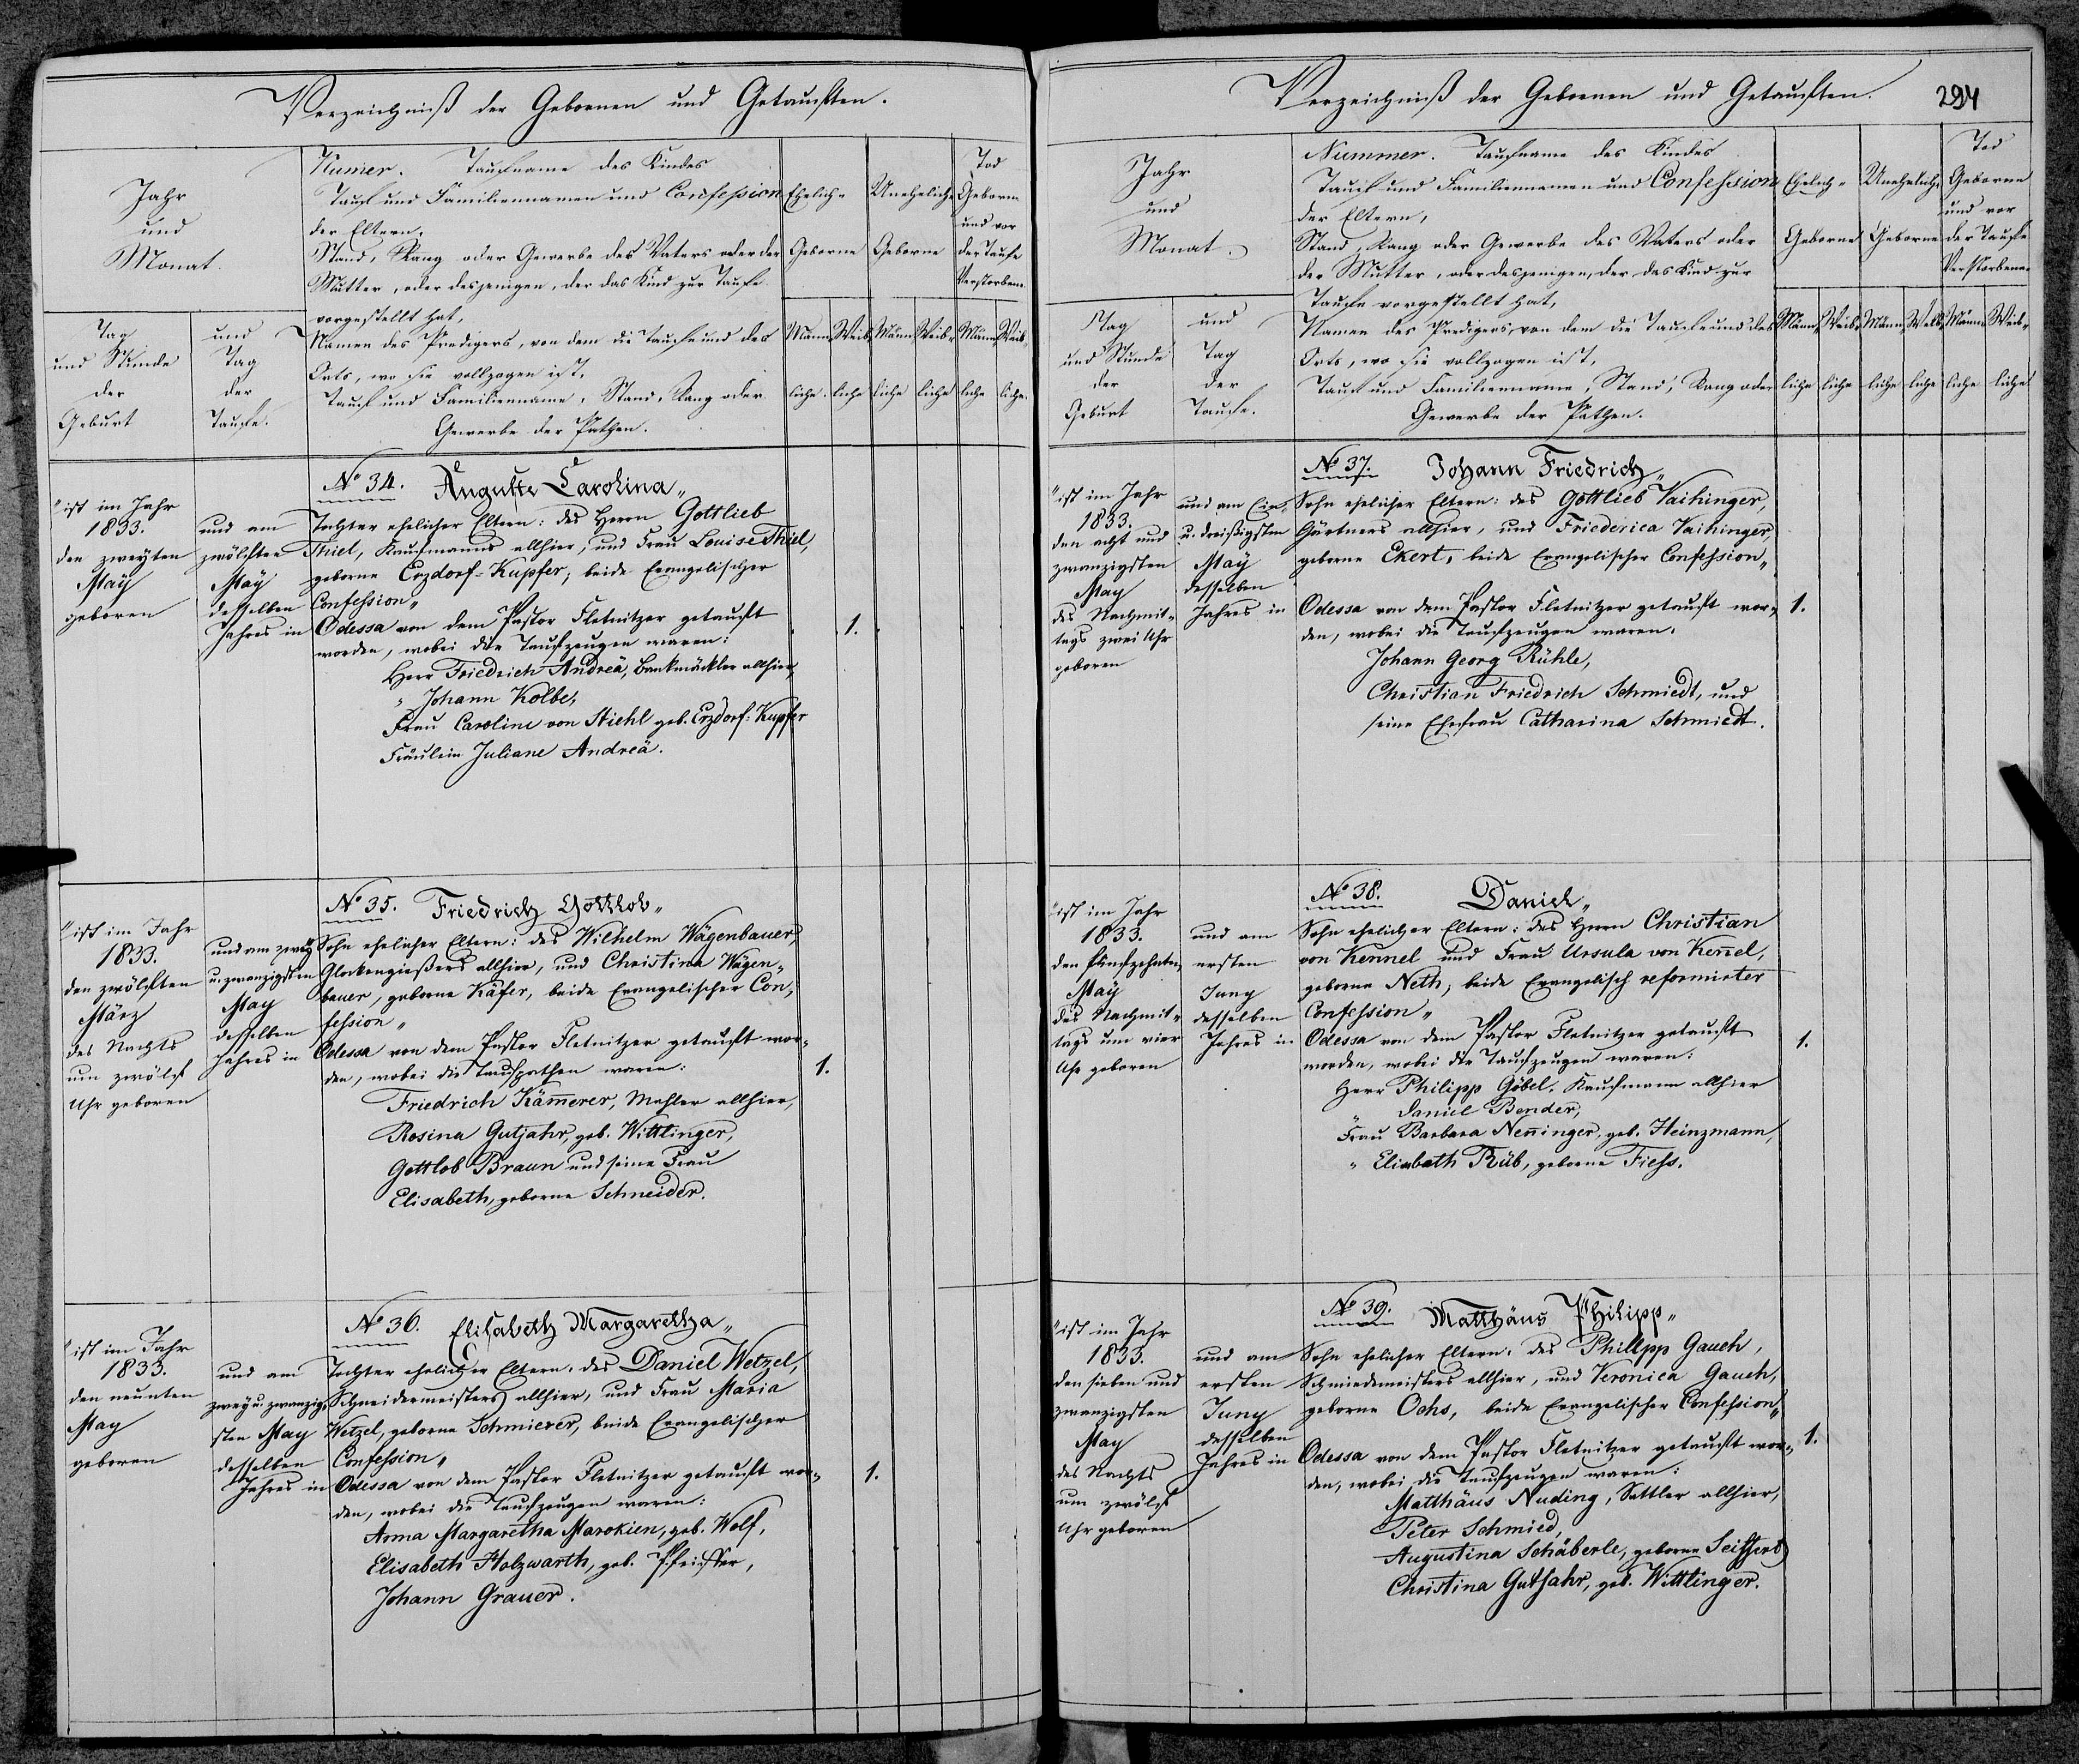 Verzeichniß der Gebornen und Getauften.
Jahr
und
Monat.
Tag
und Stunde
der
Geburt
und
Tag
der
Taufe.
Numer. Taufname des Kindes
Tauf und Familiennamen und Confession
der Eltern,
Stand, Rang oder Gewerbe des Vaters oder der
Mutter, oder desjenigen, der das Kind zur Taufe
vorgestellt hat,
Namen des Predigers, von dem die Taufe und des
Orts, wo sie vollzogen ist,
Tauf und Familienname, Stand, Rang oder
Gewerbe der Pathen.
Ehelich-
Geborne
Uneheliche
Geborne
Tod
Geborne
und vor
der Taufe
Verstorbene
Männ- Weib- Männ- Weib- Männ- Weib-
liche liche liche liche liche liche
ist im Jahr
1833.
den zweyten
May
geboren
und am
zwölften
May
desselben
Jahres in
No 34. Auguste Carolina„
Tochter ehelicher Eltern: des Herrn Gottlieb
Thiel, Kaufmanns allhier, und Frau Louise Thiel,
geborne Erzdorf-Kupfer; beide Evangelischer
Confession„
Odessa von dem Pastor Fletnitzer getauft
worden, wobei die Taufzeugen waren:
Herr Friedrich Andreä, Bankmäckler allhier,
„ Johann Kolbe,
Frau Caroline von Stiehl geb. Erzdorf-Kupfer
Fräulein Juliane Andreä.
1.
ist im Jahr
1833.
den zwölften
März
des Nachts
um zwölf
Uhr geboren
und am zwey
u. zwanzigsten
May
desselben
Jahres in
No 35. Friedrich Gottlob„
Sohn ehelicher Eltern: des Wilhelm Wägenbauer,
Glockengießers allhier, und Christina Wägen-
bauer, geborne Käfer, beide Evangelischer Con-
fession„
Odessa von dem Pastor Fletnitzer getauft wor-
den, wobei die Taufpathen waren:
Friedrich Kam̅erer, Mahler allhier,
Rosina Gutjahr, geb. Wittlinger,
Gottlob Braun und seine Frau
Elisabeth, geborne Schneider.
1.
ist im Jahr
1833.
den neunten
May
geboren
und am
zwey u. zwanzig-
sten May
desselben
Jahres in
No 36. Elisabeth Margaretha„
Tochter ehelicher Eltern, des Daniel Wetzel,
Schneidermeisters allhier, und Frau Maria
Wetzel, geborne Schmierer, beide Evangelischer
Confession„
Odessa von dem Pastor Fletnitzer getauft wor-
den, wobei die Taufzeugen waren:
Anna Margaretha Marokien, geb. Wolf,
Elisabeth Holzwarth, geb. Pfeiffer,
Johann Grauer.
1.
Verzeichniß der Gebornen und Getauften.
294
Jahr
und
Monat.
Tag
und Stunde
der
Geburt
und
Tag
der
Taufe.
Nummer. Taufname des Kindes
Tauf und Familiennamen und Confession
der Eltern,
Stand, Rang oder Gewerbe des Vaters oder
der Mutter, oder desjenigen, der das Kind zur
Taufe vorgestellt hat,
Namen des Predigers, von dem die Taufe und des
Orts, wo sie vollzogen ist,
Tauf und Familienname, Stand, Rang oder
Gewerbe der Pathen.
Ehelich-
Geborne
Uneheliche
Geborne
Tod
Geborne
und vor
der Taufe
Verstorbene
Männ- Weib- Männ- Weib- Männ- Weib-
liche liche liche liche liche liche
ist im Jahr
1833.
den acht und
zwanzigsten
May
des Nachmit-
tags zwei Uhr
geboren
und am Ein
u. dreißigsten
May
desselben
Jahres in
No 37. Johann Friedrich„
Sohn ehelicher Eltern: des Gottlieb Vaihinger,
Gärtners allhier, und Friederica Vaihinger,
geborne Ekert, beide Evangelischer Confession„
Odessa von dem Pastor Fletnitzer getauft wor-
den, wobei die Taufzeugen waren.
Johann Georg Rühle,
Christian Friedrich Schmiedt, und
seine Ehefrau Catharina Schmiedt.
1.
ist im Jahr
1833.
den fünfzehnten
May
des Nachmit-
tags um vier
Uhr geboren
und am
ersten
Juny
desselben
Jahres in
No 38. Daniel„
Sohn ehelicher Eltern: des Herrn Christian
von Kennel und Frau Ursula von Ken̅el,
geborne Neth; beide Evangelisch reformirter
Confession„
Odessa von dem Pastor Fletnitzer getauft
worden, wobei die Taufzeugen waren:
Herr Philipp Göbel, Kaufmann allhier
„ Daniel Bender,
Frau Barbara Nen̅inger, geb. Heinzmann,
„ Elisabeth Rüb, geborne Fiess.
1.
ist im Jahr
1833.
den sieben und
zwanzigsten
May
des Nachts
um zwölf
Uhr geboren
und am
ersten
Juny
desselben
Jahres in
No 39. Matthäus Philipp„
Sohn ehelicher Eltern, des Philipp Gauch,
Schmiedemeisters allhier, und Veronica Gauch,
geborne Ochs, beide Evangelischer Confession„
Odessa von dem Pastor Fletnitzer getauft wor-
den, wobei die Taufzeugen waren:
Matthäus Nuding, Sattler allhier,
Peter Schmied,
Augustina Schäberle, geborne Seiffert
Christina Gutjahr, geb. Wittlinger.
1.